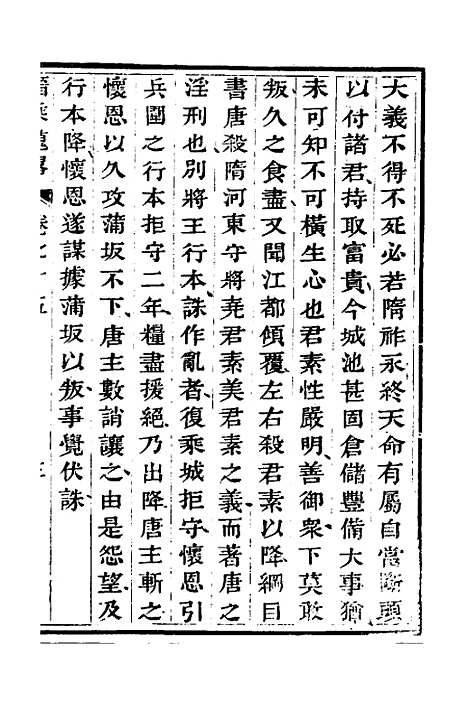 大義不得不死必若隋祚永終天命有屬自當斷頭
以付諸君持取富貴今城池甚固倉儲豐備大事猶
未可知不可橫生心也君素性嚴明善御衆下莫敢
叛久之食盡又聞江都傾覆左右殺君素以降綱目
書唐殺隋河東守將堯君素美君素之義而著唐之
淫刑也別將王行本誅作亂者復乘城拒守懷恩引
兵圍之行本拒守二年糧盡援絕乃出降唐主斬之
懷恩以久攻蒲坂不下唐主數誚讓之由是怨望及
行本降懷恩遂謀據蒲坂以叛事覺伏誅
晉乘蒐畧 卷之十五 三